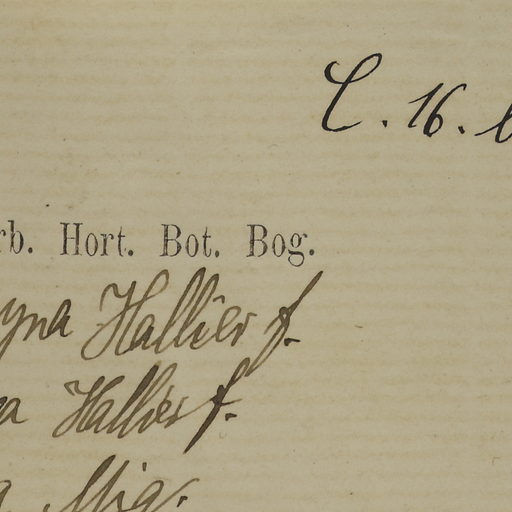 C. 16. b
rb. Hort. Bot. Bog.
yna Hallier f.
a Hallier f.
a Miq.